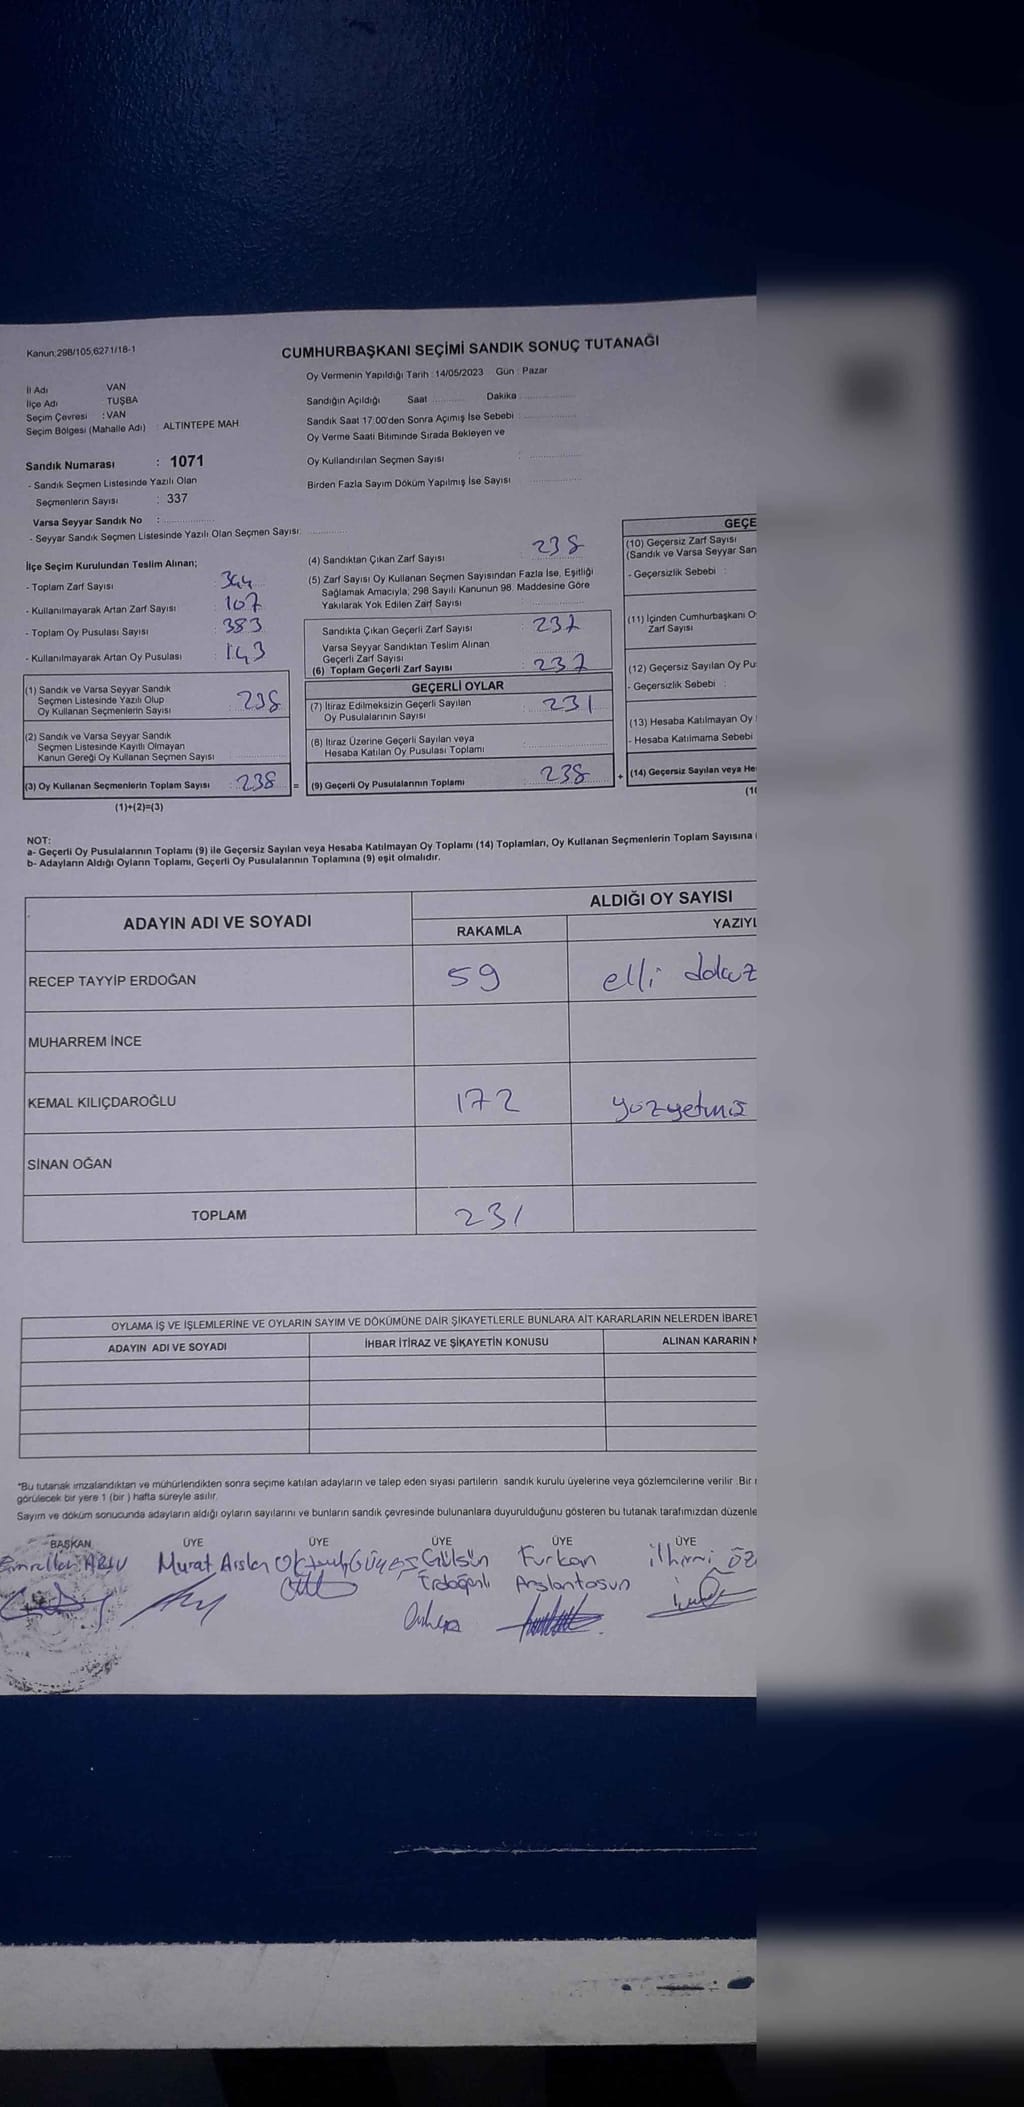 Kanun;298/105,6271/18-1
CUMHURBAŞKANI SEÇİMİ SANDIK SONUÇ TUTANAĞI
Oy Vermenin Yapıldığı Tarih : 14/05/2023 Gün : Pazar
İl Adı VAN
İlçe Adı TUŞBA
Seçim Çevresi : VAN
Seçim Bölgesi (Mahalle Adı) : ALTINTEPE MAH
Sandığın Açıldığı Saat .......... Dakika ..........
Sandık Saat 17:00'den Sonra Açımış İse Sebebi ..........
Oy Verme Saati Bitiminde Sırada Bekleyen ve
Oy Kullandırılan Seçmen Sayısı : ..........
Birden Fazla Sayım Döküm Yapılmış İse Sayısı ..........
Sandık Numarası : 1071
- Sandık Seçmen Listesinde Yazılı Olan
Seçmenlerin Sayısı : 337
Varsa Seyyar Sandık No : ..........
- Seyyar Sandık Seçmen Listesinde Yazılı Olan Seçmen Sayısı: ..........
İlçe Seçim Kurulundan Teslim Alınan;
- Toplam Zarf Sayısı 344
- Kullanılmayarak Artan Zarf Sayısı 107
- Toplam Oy Pusulası Sayısı 383
- Kullanılmayarak Artan Oy Pusulası 143
(1) Sandık ve Varsa Seyyar Sandık
Seçmen Listesinde Yazılı Olup
Oy Kullanan Seçmenlerin Sayısı 238
(2) Sandık ve Varsa Seyyar Sandık
Seçmen Listesinde Kayıtlı Olmayan
Kanun Gereği Oy Kullanan Seçmen Sayısı ..........
(3) Oy Kullanan Seçmenlerin Toplam Sayısı 238 =
(1)+(2)=(3)
(4) Sandıktan Çıkan Zarf Sayısı 238
(5) Zarf Sayısı Oy Kullanan Seçmen Sayısından Fazla İse, Eşitliği
Sağlamak Amacıyla, 298 Sayılı Kanunun 98. Maddesine Göre
Yakılarak Yok Edilen Zarf Sayısı ..........
Sandıkta Çıkan Geçerli Zarf Sayısı : 237
Varsa Seyyar Sandıktan Teslim Alınan
Geçerli Zarf Sayısı
(6) Toplam Geçerli Zarf Sayısı : 237
GEÇERLİ OYLAR
(7) İtiraz Edilmeksizin Geçerli Sayılan
Oy Pusulalarının Sayısı : 231
(8) İtiraz Üzerine Geçerli Sayılan veya
Hesaba Katılan Oy Pusulası Toplamı ..........
(9) Geçerli Oy Pusulalarının Toplamı 238 +
GEÇE
(10) Geçersiz Zarf Sayısı
(Sandık ve Varsa Seyyar San
- Geçersizlik Sebebi :
(11) İçinden Cumhurbaşkanı O
Zarf Sayısı
(12) Geçersiz Sayılan Oy Pu
- Geçersizlik Sebebi :
(13) Hesaba Katılmayan Oy
- Hesaba Katılmama Sebebi
(14) Geçersiz Sayılan veya He
NOT:
a- Geçerli Oy Pusulalarının Toplamı (9) ile Geçersiz Sayılan veya Hesaba Katılmayan Oy Toplamı (14) Toplamları, Oy Kullanan Seçmenlerin Toplam Sayısına
b- Adayların Aldığı Oyların Toplamı, Geçerli Oy Pusulalarının Toplamına (9) eşit olmalıdır.
ADAYIN ADI VE SOYADI ALDIĞI OY SAYISI
RAKAMLA YAZIYL
RECEP TAYYİP ERDOĞAN 59 elli dokuz
MUHARREM İNCE
KEMAL KILIÇDAROĞLU 172 yüzyetmiş
SİNAN OĞAN
TOPLAM 231
OYLAMA İŞ VE İŞLEMLERİNE VE OYLARIN SAYIM VE DÖKÜMÜNE DAİR ŞİKAYETLERLE BUNLARA AİT KARARLARIN NELERDEN İBARET
ADAYIN ADI VE SOYADI İHBAR İTİRAZ VE ŞİKAYETİN KONUSU ALINAN KARARIN
*Bu tutanak imzalandıktan ve mühürlendikten sonra seçime katılan adayların ve talep eden siyasi partilerin sandık kurulu üyelerine veya gözlemcilerine verilir. Bir
görülecek bir yere 1 (bir) hafta süreyle asılır.
Sayım ve döküm sonucunda adayların aldığı oyların sayılarını ve bunların sandık çevresinde bulunanlara duyurulduğunu gösteren bu tutanak tarafımızdan düzenle
BAŞKAN ÜYE ÜYE ÜYE ÜYE ÜYE
Murat Arslan Güneş Gülsün Furkan ilhami öz
Erdoğanlı Arslantosun